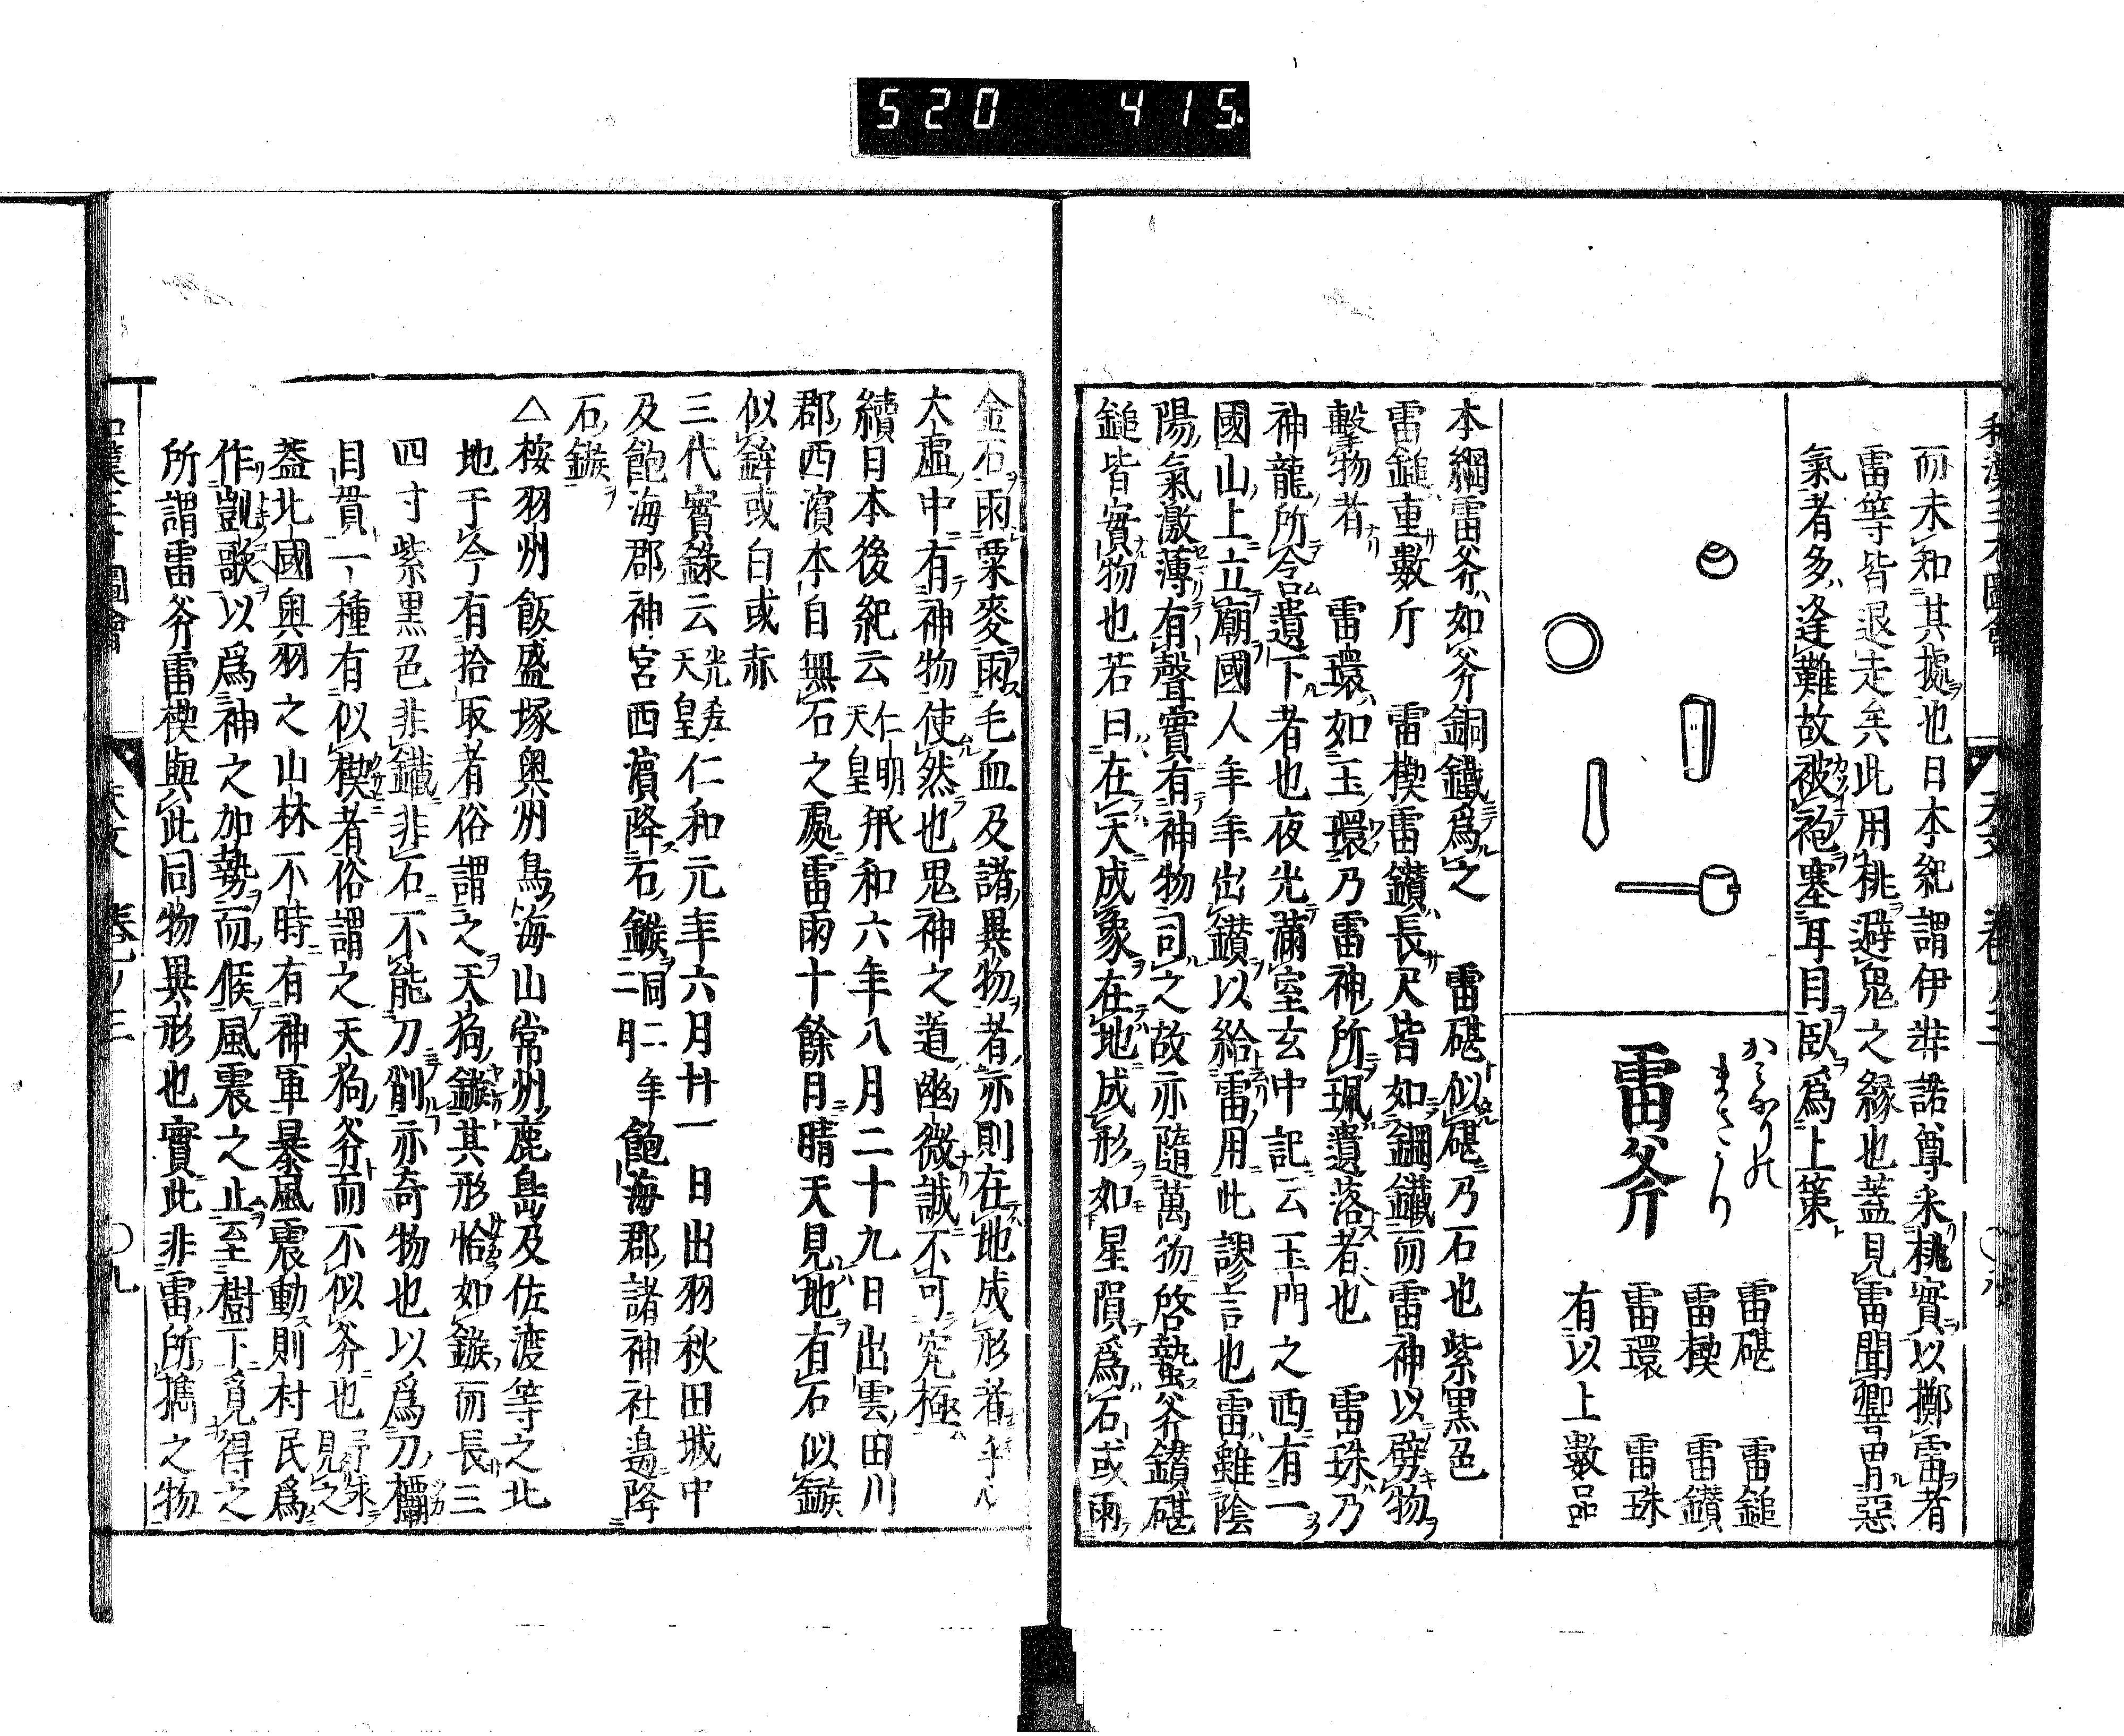 520 415
而未和其據也日本紀謂伊弉諾尊采桃實以擲雷者
雷等皆退走矣此用桃避鬼之緣也蓋見雷聞響胃惡
氣者多逢難故被袍塞耳目臥爲上策
かみなりの
まさかり
雷斧
雷碪 雷鎚
雷楔 雷鑽
雷環 雷珠
有以上數品
本綱雷斧如斧銅鐵爲之 雷碪似碪乃石也紫黑色
雷鎚重數斤 雷楔雷鑽長尺皆如鋼鐵而雷神以劈物
擊物者 雷環如玉環乃雷神所珮遺落者也 雷珠乃
神龍所含遺下者也夜光滿室玄中記云玉門之西有一
國山上立廟國人年年出鑽以給雷用此謬言也雷雖陰
陽氣激薄有聲實有神物司之故亦隨萬物啓蟄斧鑽碪
鎚皆實物也若曰在天成象在地成形如星隕爲石或雨
金石雨粟麥雨毛血及諸異物者亦則在地成形者乎
大虛中有神物使然也鬼神之道幽微誠不可究極
續日本後紀云仁明天皇承和六年八月二十九日出雲田川
郡西濱本自無石之處雷雨十餘日晴天見地有石似鏃
似鉾或白或赤
三代實錄云光孝天皇仁和元年六月廿一日出羽秋田城中
及飽海郡神宮西濱降石鏃同二年二月飽海郡諸神社邊降
石鏃
△桉羽州飯盛塚奥州鳥海山常州鹿島及佐渡等之北
地于今有拾取者俗謂之天狗鏃其形恰如鏃而長三
四寸紫黑色非鐵非石不能刀削亦奇物也以爲刀欛
目貫一種有似楔者俗謂之天狗斧而不似斧也予求見之
蓋北國奥羽之山林不時有神軍暴風震動則村民爲
作凱歌以爲神之加勢而候風震之止至樹下覓得之
所謂雷斧雷楔與此同物異形也實此非雷所擕之物